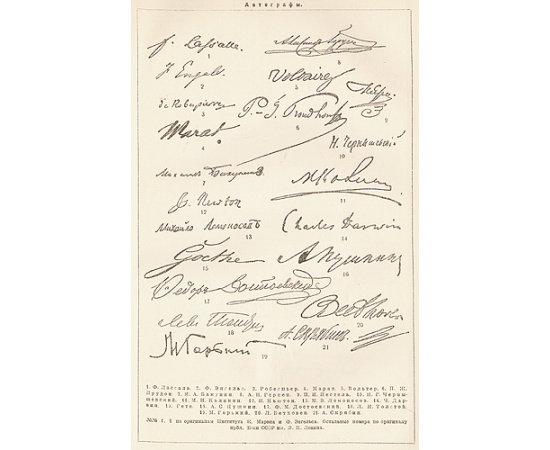 Автографы.
F. Lassalle.
1
F Engels.
2
3
Marat.
4
Voltaire
5
P.-J. Proudhon
6
7
8
9
Н. Чернышевскій
10
МКалинин
11
Is. Newton
12
Михайло Ломоносовъ
13
Charles Darwin
14
Goethe
15
А Пушкинъ
16
Федоръ Достоевский
17
Левъ Толстой
18
М Горький
19
Beethoven
20
А. Скрябинъ
21
1. Ф. Лассаль. 2. Ф. Энгельс. 3. Робеспьер. 4. Марат. 5. Вольтер. 6. П. Ж.
Прудон. 7. М. А. Бакунин. 8. А. И. Герцен. 9. П. И. Пестель. 10. Н. Г. Черны-
шевский. 11. М. И. Калинин. 12. И. Ньютон. 13. М. В. Ломоносов. 14. Ч. Дар-
вин. 15. Гете. 16. А. С. Пушкин. 17. Ф. М. Достоевский. 18. Л. Н. Толстой.
19. М. Горький. 20. Л. Бетховен. 21. А. Скрябин.
№№ 1, 2 по оригиналам Института К. Маркса и Ф. Энгельса. Остальные номера по оригиналу
публ. Библ СССР им. В. И. Ленина.